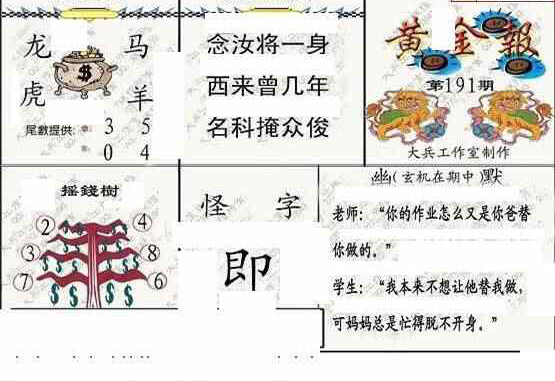 龙 马
虎 羊
$
尾數提供: 3 5
0 4
念汝将一身
西来曾几年
名科掩众俊
黄金報
第191期
大兵工作室制作
摇錢樹
2 4
3 8
7 6
怪 字
即
幽(玄机在期中)默
老师：“你的作业怎么又是你爸替
你做的。”
学生：“我本来不想让他替我做，
可妈妈总是忙得脱不开身。”